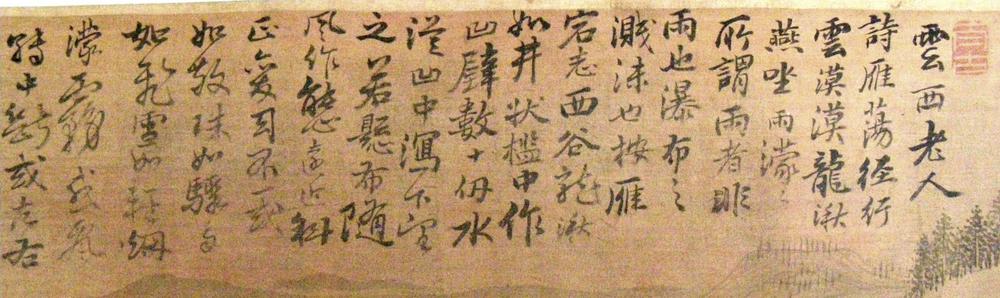 雲西老人
詩雁蕩經行
雲漠漠龍湫
燕坐雨濛〻
所謂雨者非
雨也瀑布之
濺沫也按雁
宕志西谷龍湫
如井狀檻中作
凹壁數十仞水
從凹中瀉下望
之若懸布隨
風作態遠近斜
正變幻不一或
如散珠如驟
如飛雪如輕烟
濛霧或飄
轉中斷或左右